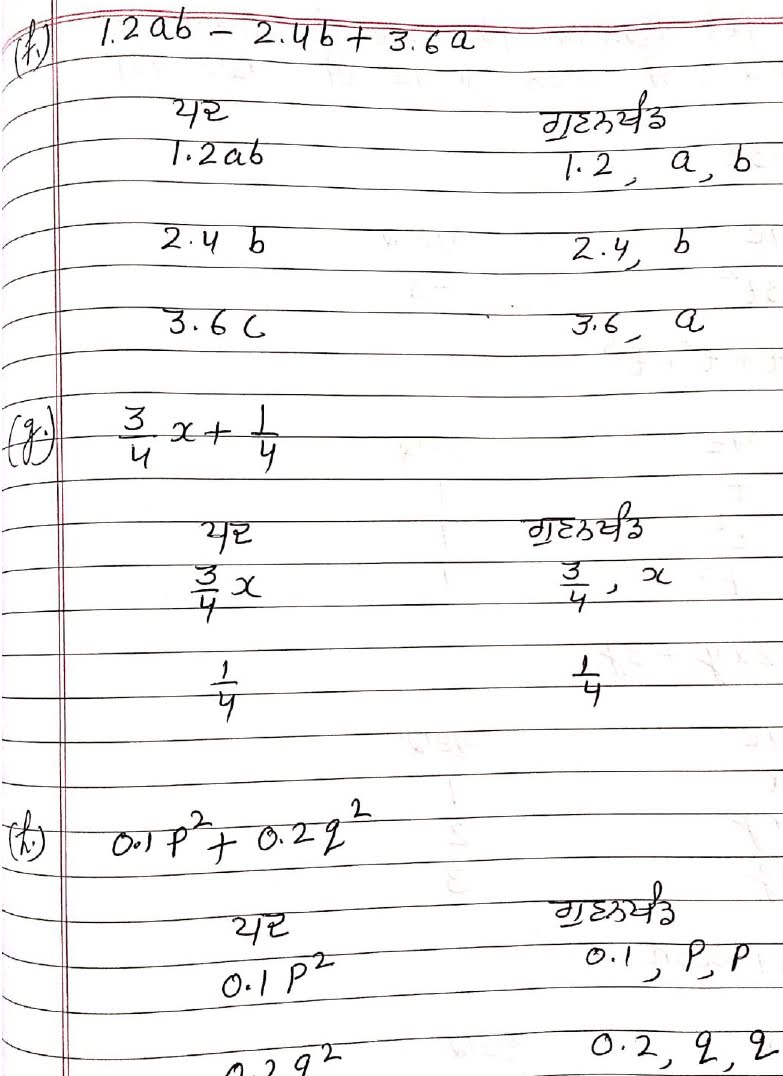 (f.) 1.2ab - 2.4b + 3.6a
ਪਦ ਗੁਣਨਖੰਡ
1.2ab 1.2, a, b
2.4 b 2.4, b
3.6 c 3.6, a
(g.) 3/4 x + 1/4
ਪਦ ਗੁਣਨਖੰਡ
3/4 x 3/4, x
1/4 1/4
(h.) 0.1 p² + 0.2 q²
ਪਦ ਗੁਣਨਖੰਡ
0.1 p² 0.1, p, p
0.2 q² 0.2, q, q